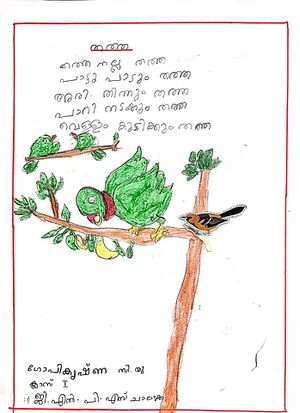 തത്ത
തത്ത നല്ല തത്ത
പാട്ടു പാടും തത്ത
അരി തിന്നും തത്ത
പാറി നടക്കും തത്ത
വെള്ളം കുടിക്കും തത്ത
ഗോപികൃഷ്ണ സി.യു
ക്ലാസ് I
ജി. എൻ. പി. എസ്